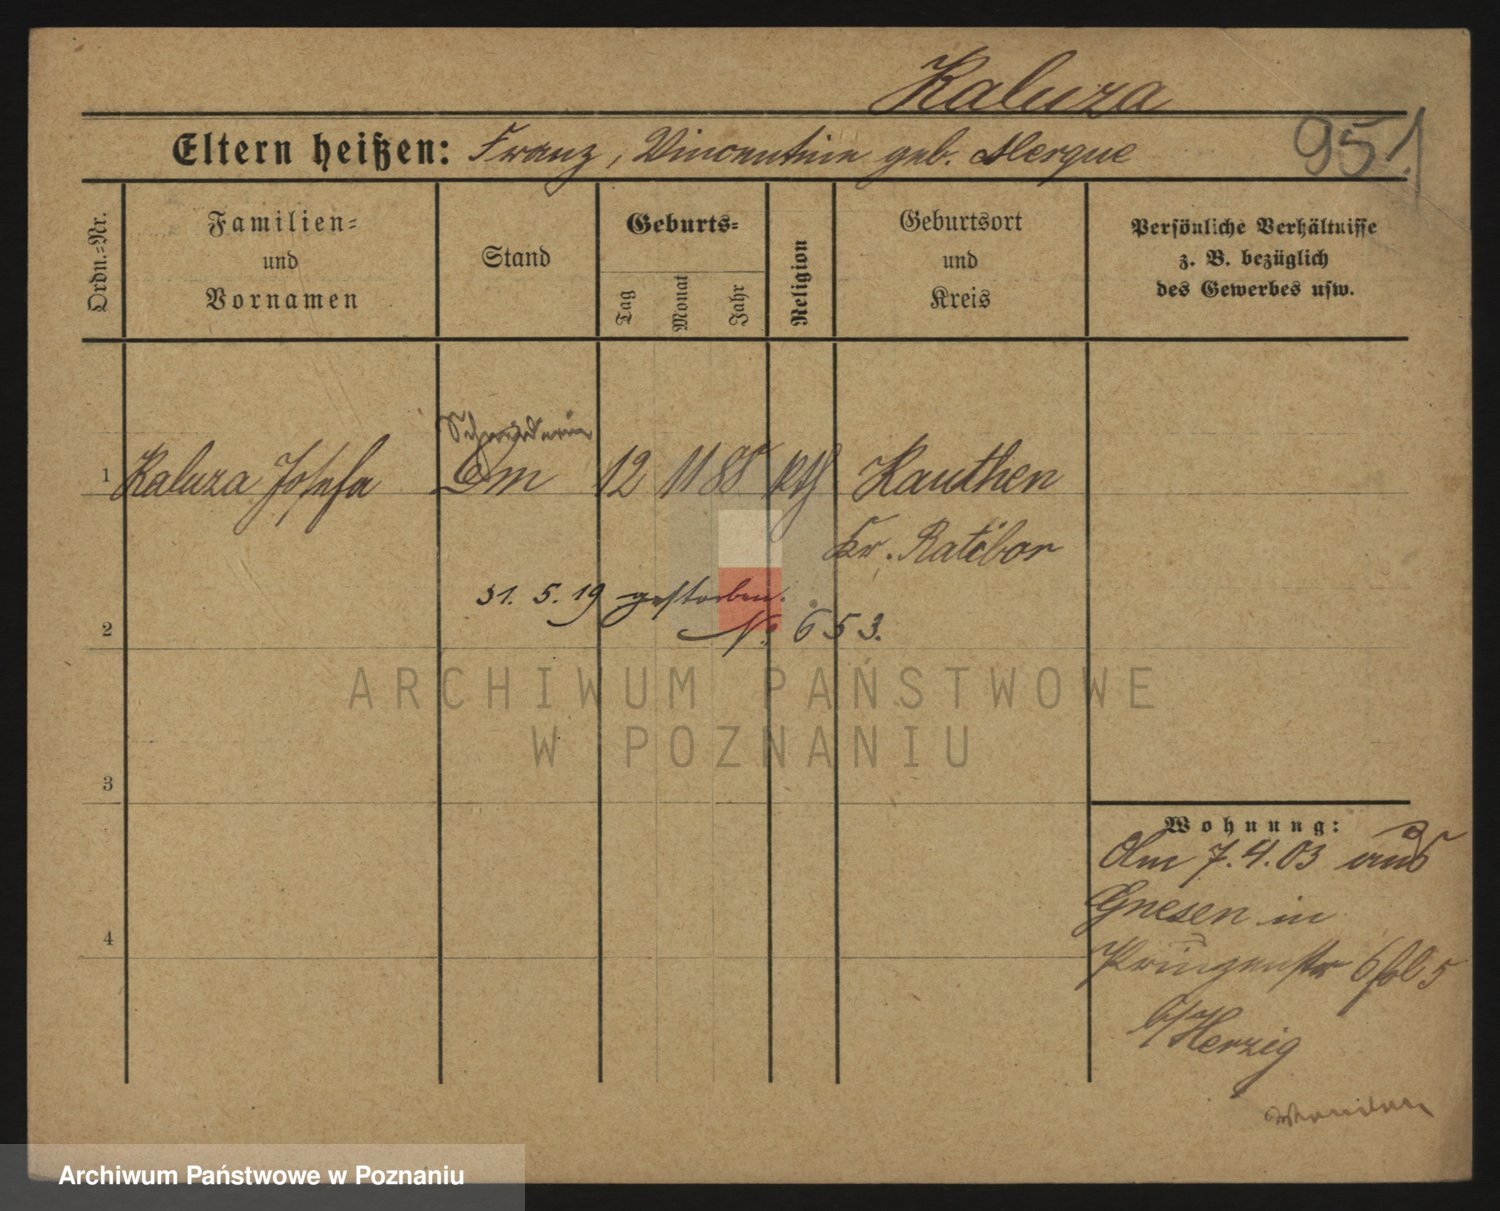 Kaluza
Eltern heißen: Franz, Vincentine geb. Merque
95!
Ordn.-Nr.
Familien- und Vornamen
Stand
Geburts-
Tag
Monat
Jahr
Religion
Geburtsort und Kreis
Persönliche Verhältnisse
z. B. bezüglich
des Gewerbes usw.
Schneiderin
1 Kaluza Josefa Dm 12 11 88 kth Kauthen
Kr. Ratibor
31. 5. 19 gestorben.
2 No 653.
ARCHIWUM PAŃSTWOWE
W POZNANIU
3
Wohnung:
Am 7.4.03 aus
Gnesen in
4
Prinzenstr 6 5
b/Herzig
Archiwum Państwowe w Poznaniu